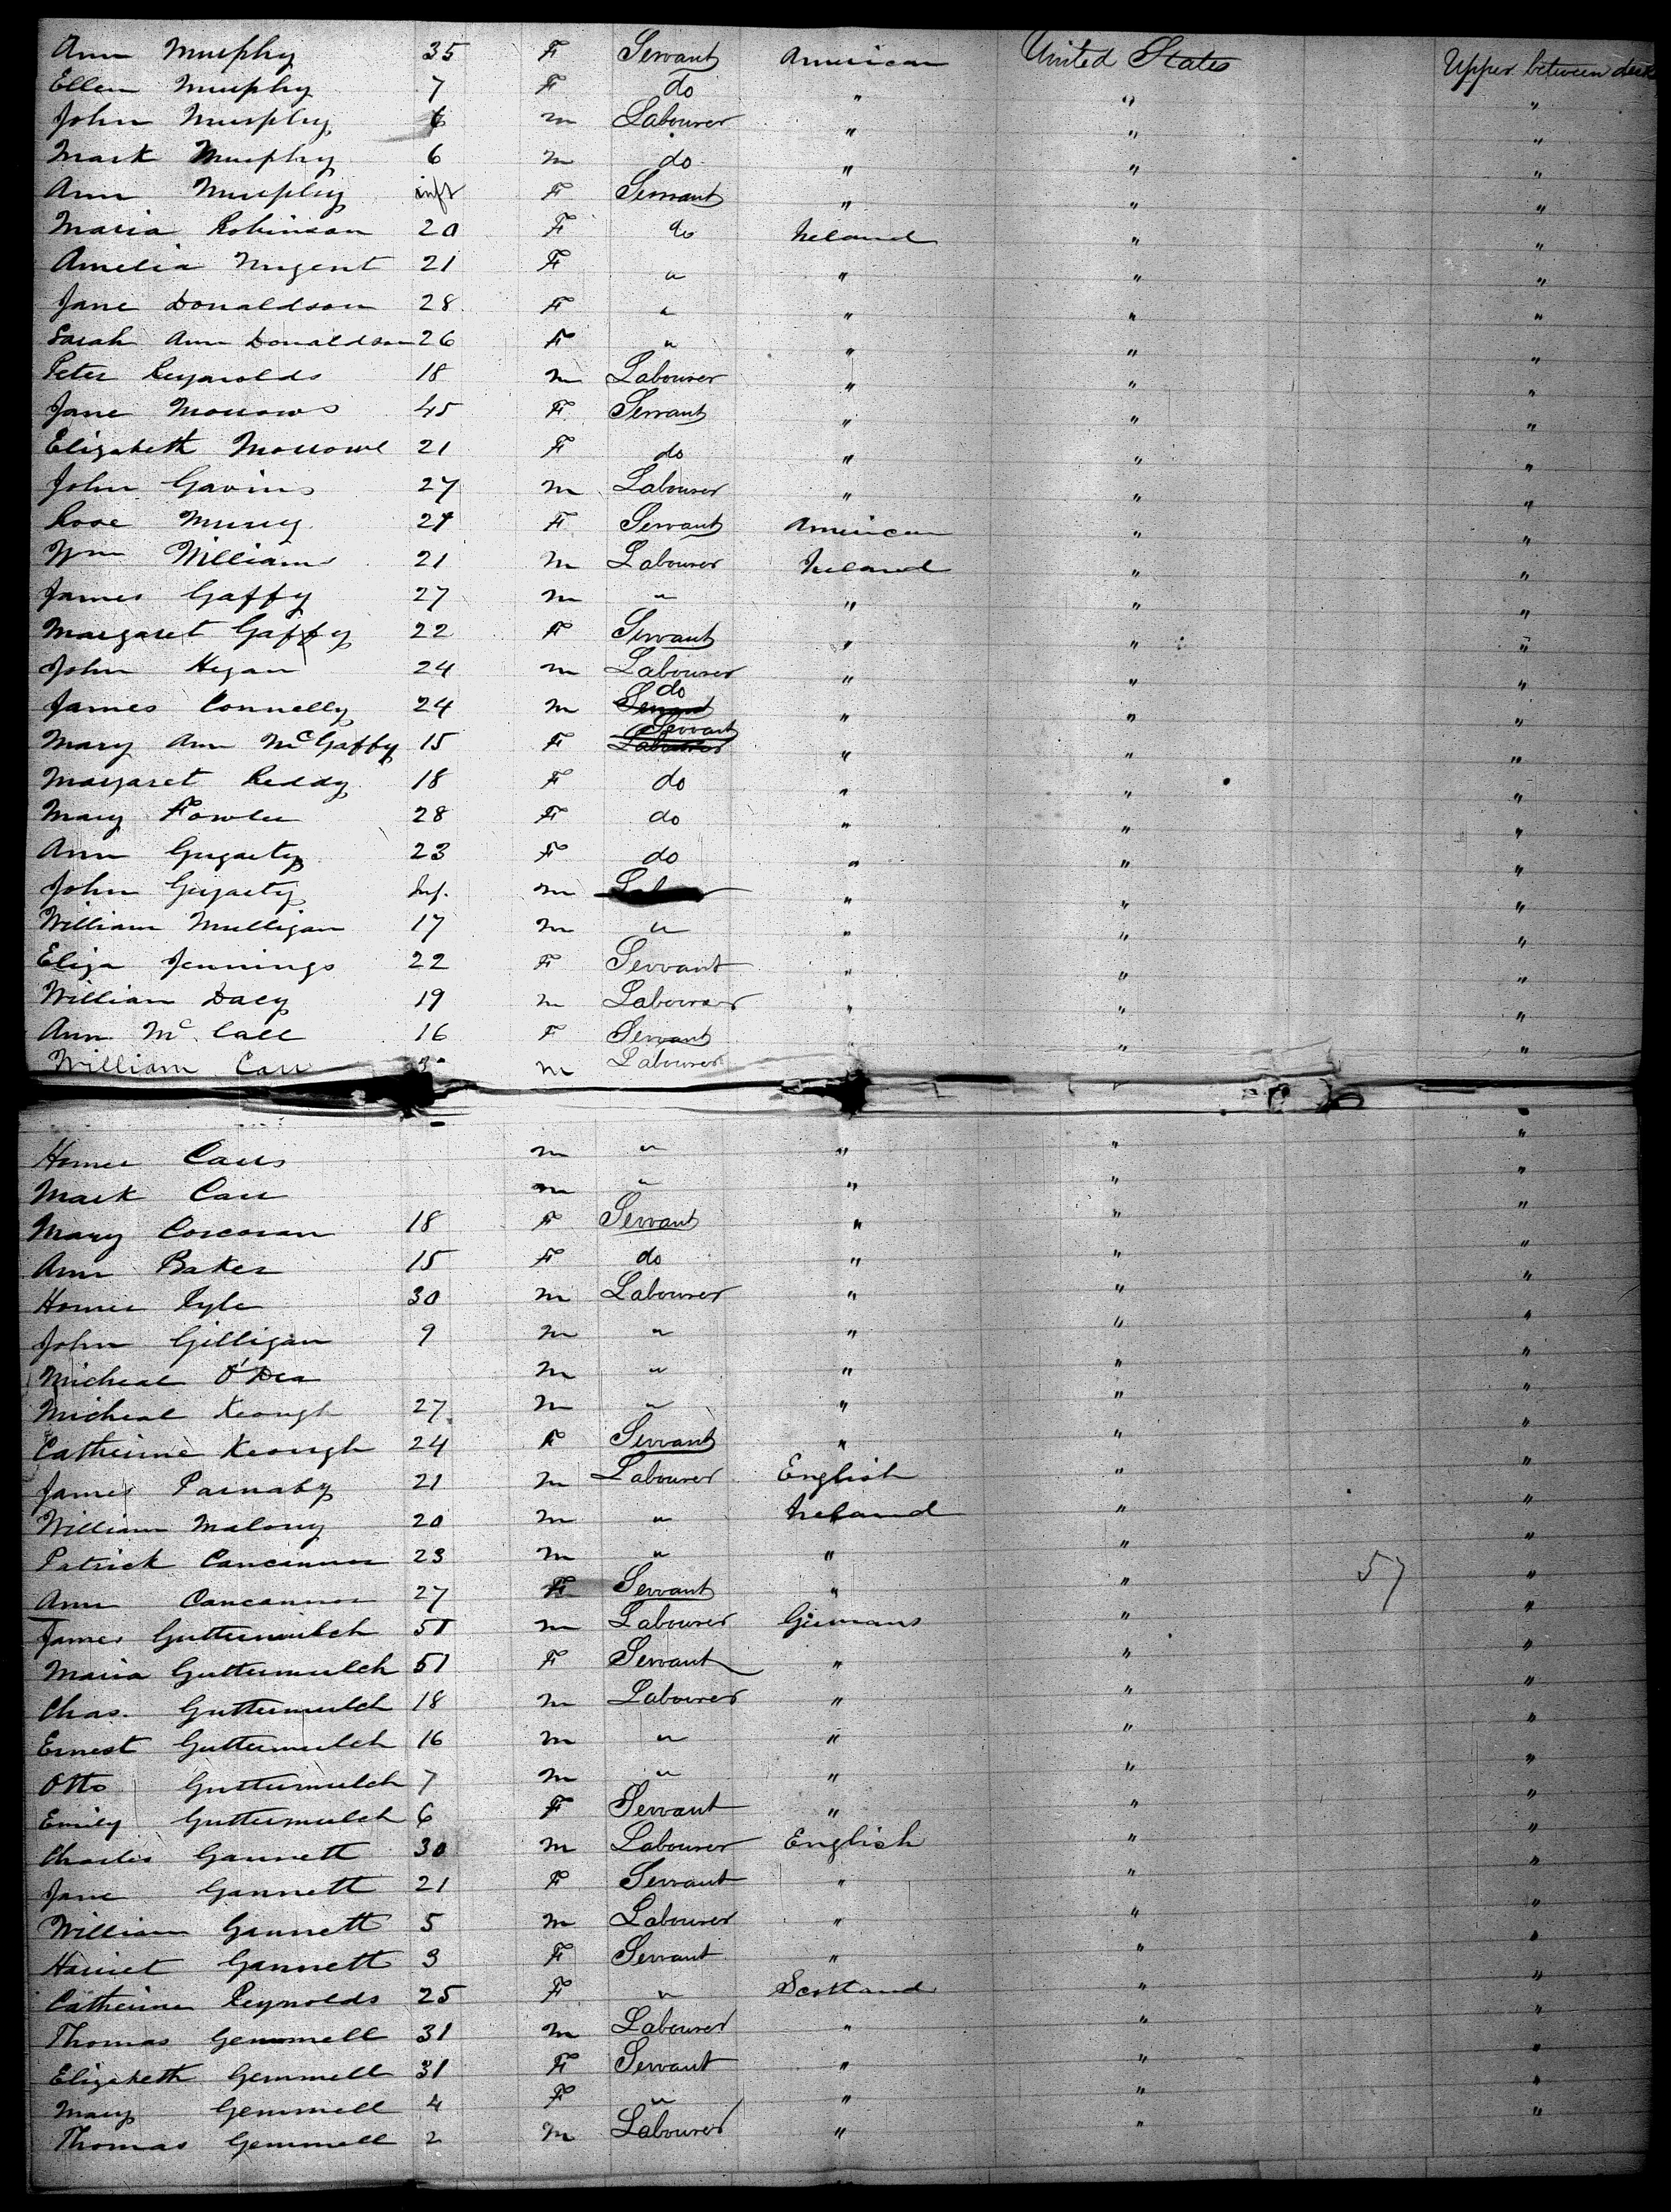 Ann Murphy 35 F Servant American United States Upper between decks
Ellen Murphy 7 F do " " "
John Murphy 6 m Labourer " " "
Mark Murphy 6 m do " " "
Ann Murphy inft F Servant " " "
Maria Robinson 20 F do Ireland " "
Amelia Nugent 21 F " " " "
Jane Donaldson 28 F " " " "
Sarah Ann Donaldson 26 F " " " "
Peter Reynolds 18 m Labourer " " "
Jane Morrows 45 F Servant " " "
Elizabeth 21 F do " " "
John Gavins 27 m Labourer " " "
Rose 24 F Servant American " "
Wm Williams 21 m Labourer Ireland " "
James Gaffy 27 m " " " "
Margaret Gaffy 22 F Servant " " "
John Hegan 24 m Labourer " " "
James Connelly 24 m Servant do " " "
Mary Ann McGaffy 15 F Labourer Servant " " "
Margaret Reddy 18 F do " " "
Mary Fowler 28 F do " " "
Ann 23 F do " " "
John Inf. m " " "
William Mulligan 17 m " " " "
Eliza Jennings 22 F Servant " " "
William Dacy 19 m Labourer " " "
Ann McCall 16 F Servant " " "
William Carr m Labourer
Carrs m " " " "
Mark Carr m " " " "
Mary Corcoran 18 F Servant " " "
Ann Baker 15 F do " " "
Pyle 30 m Labourer " " "
John Gilligan 9 m " " " "
Micheal O'Dea m " " " "
Micheal Keough 27 m " " " "
Catherine Keough 24 F Servant " " "
James Parnaby 21 m Labourer English " "
William Malony 20 m " Ireland " "
Patrick Cancannon 23 m " " " "
57
Ann Cancannon 27 F Servant " " "
James Guttermulch 51 m Labourer Germans " "
Maria Guttermulch 51 F Servant " " "
Chas. Guttermulch 18 m Labourer " " "
Ernest Guttermulch 16 m " " " "
Otto Guttermulch 7 m " " " "
Emily Guttermulch 6 F Servant " " "
Charles Gannett 30 m Labourer English " "
Jane Gannett 21 F Servant " " "
William Gannett 5 m Labourer " " "
Harriet Gannett 3 F Servant " " "
Catherine Reynolds 25 F " Scotland " "
Thomas Gemmell 31 m Labourer " " "
Elizabeth Gemmell 31 F Servant " " "
Mary Gemmell 4 F " " " "
Thomas Gemmell 2 m Labourer " " "